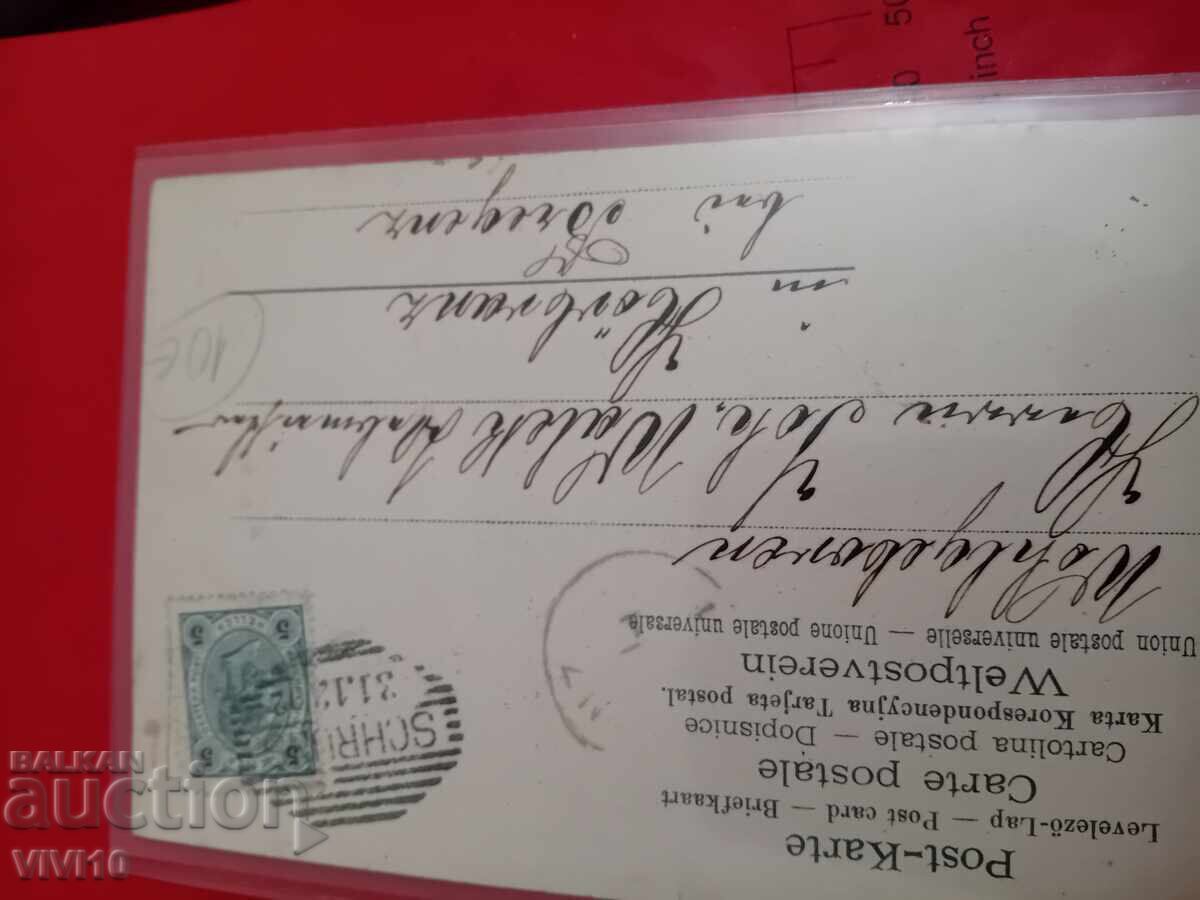 Post-Karte
Levelező-Lap — Post card — Briefkaart
Carte postale
Cartolina postale — Dopisnice
Karta Korespondencyjna Tarjeta postal.
Weltpostverein
Union postale universelle — Unione postale universale
Wohlgeboren
Herrn Joh. Walch
in Hörbranz
bei Bregenz
5 5
HELLER
5 5
SCHR
31.12
10€
50
inch
BALKAN
auction
VIVI10